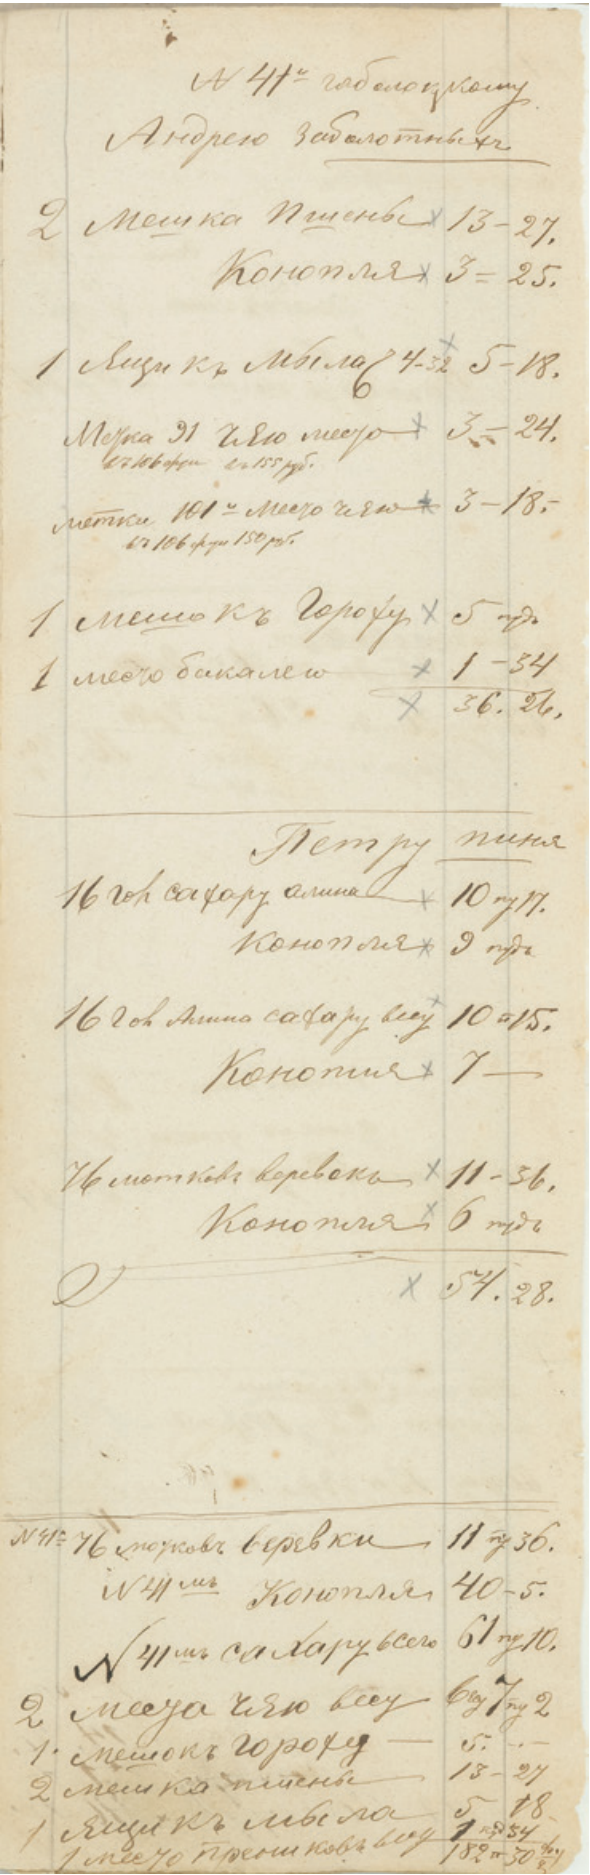 N 41й
Андрею Заболотныхъ
2 Мешка Пшены x 13-27.
Конопля x 3= 25.
1 Ящикъ Мыла 4-32 x 5-18.
Метка 91 чаю место x 3= 24.
въ 106 фун въ 155 руб.
метки 101й место чаю x 3-18.-
въ 106 фун 150 руб.
1 мешокъ Гороху x 5 пудъ
1 место бакалею x 1-34
x 36. 26.
Петру
16 гол сахару x 10 пу 17.
Конопля x 9 пудъ
16 гол сахару весу x 10 п 15.
Конопля x 7 —
76 мотковъ веревокъ x 11-36.
Конопля x 6 пудъ
x 54. 28.
N 41й 76 мотковъ веревки 11 пу 36.
N 41мъ Конопля 40-5.
N 41мъ сахару всего 61 пу 10.
2 места чаю весу 7 пу 2
1. мешокъ гороху — 5. --
2 мешка пшены 13-27
1 Ящикъ мыла 5 18
1 место пряниковъ весу 1 34
182 п 30